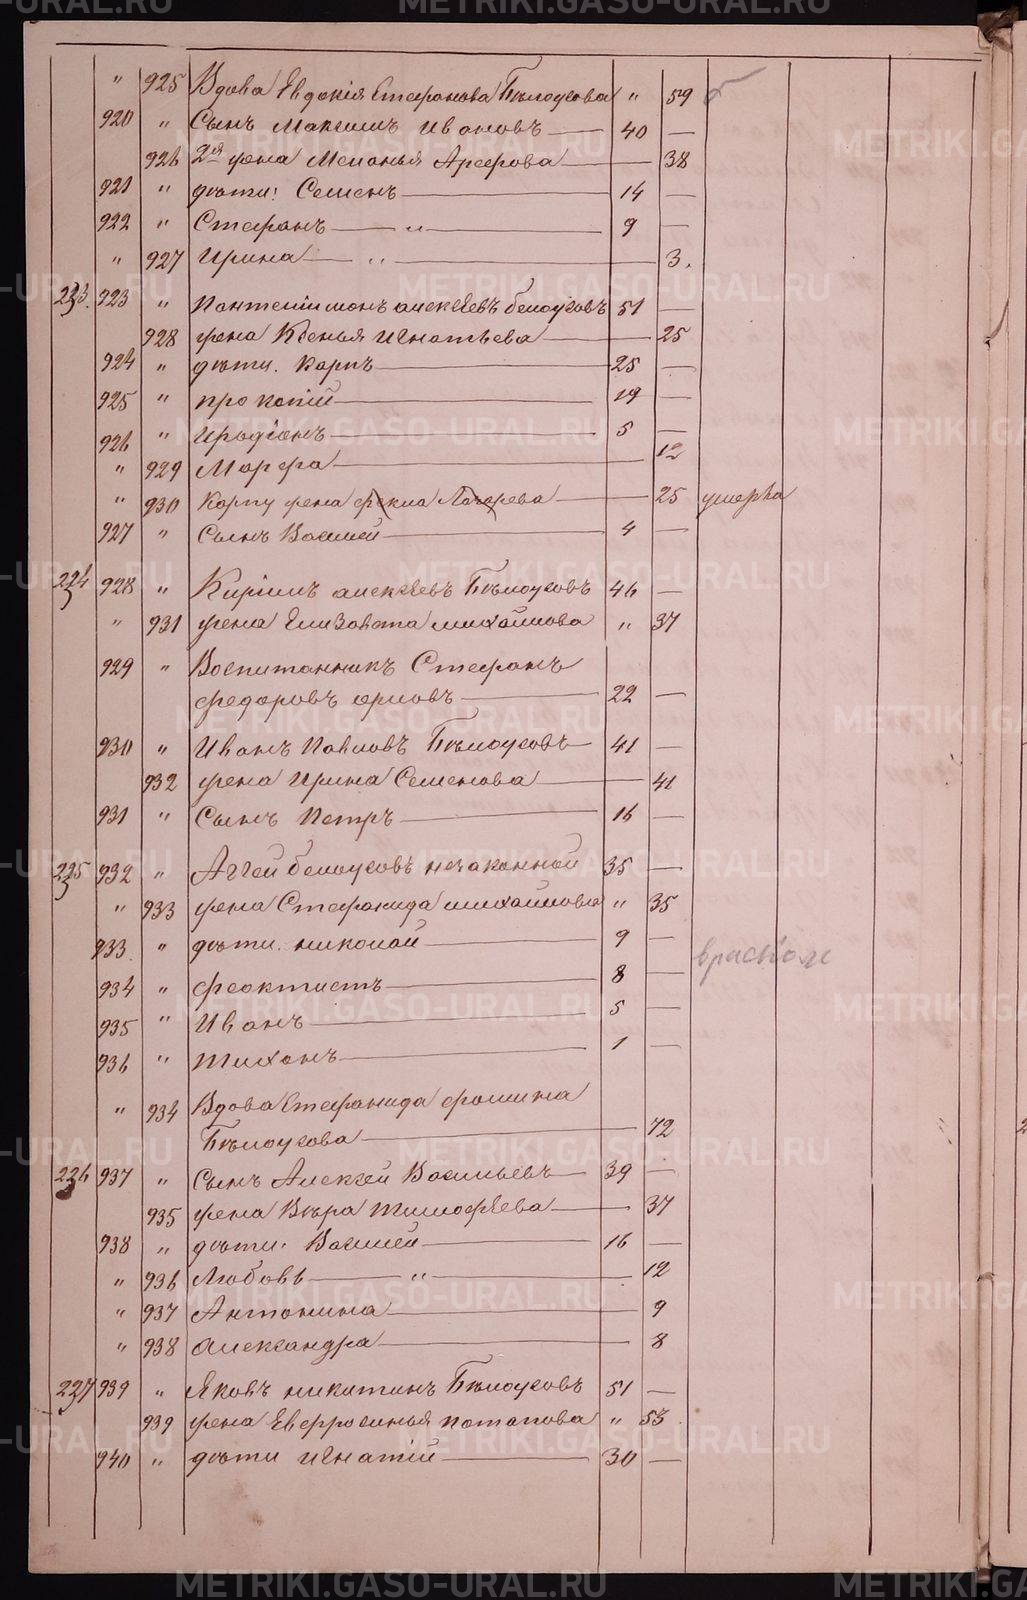 " 925 Вдова Евдокія Стефанова Бѣлоусова " 59
920 " Сынъ Максимъ Ивановъ — 40 —
926 2я жена Меланья Арефова — 38
921 " дѣти: Семенъ — 14 —
922 " Стефанъ — " — 9 —
" 927 Ирина — " — 3.
223. 923 " Пантелiимонъ алексѣевъ белоусовъ 51 —
928 жена Ксенья Игнатьева — 25
924 " дѣти. Карпъ — 25 —
925 " прокопій — 19 —
926 " Иродіонъ — 5 —
" 929 Марфа — 12
" 930 Карпу жена фекла Лазарева — 25 умерла
927 " Сынъ Василей — 4 —
224 928 " Кирилъ алексѣевъ Бѣлоусовъ 46 —
" 931 жена Елизавета михайлова " 37
929 " Воспитанникъ Стефанъ
федоровъ орловъ — 22 —
930 " Иванъ Павловъ Бѣлоусовъ — 41 —
932 жена Ирина Семенова — 41
931 " Сынъ Петръ — 16 —
225 932 " Аггей белоусовъ незаконной 35 —
" 933 жена Стефанида михайлова " 35
933. " дѣти. николай — 9 —
врасколе
934 " феоктистъ — 8 —
935 " Иванъ — 5 —
936 " Тихонъ — 1 —
" 934 Вдова Стефанида фомина
Бѣлоусова — 72
226 937 " Сынъ Алексей Васильевъ — 39 —
935 жена Вѣра Тимофѣева — 37
938 " дѣти. Василей — 16 —
" 936 Любовь — " — 12
" 937 Антонина — 9
" 938 Александра — 8
227 939 " Яковъ никитинъ Бѣлоусовъ 51 —
939 жена Евфросинья потапова " 53
940 " дѣти игнатій — 30 —
METRIKI.GASO-URAL.RU